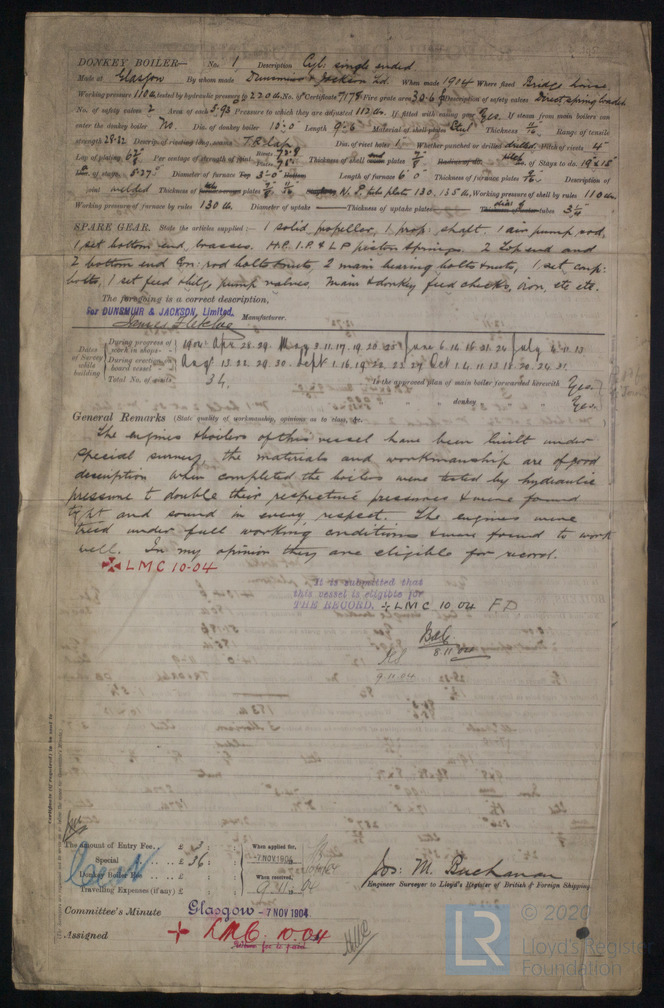 DONKEY BOILER— No. 1 Description Cyl. single ended.
Made at Glasgow By whom made Dunsmuir & Jackson Ld. When made 1904 Where fixed Bridge house
Working pressure 110 lb tested by hydraulic pressure to 220 lb No. of Certificate 7178 Fire grate area 30.6 Description of safety valves Direct spring loaded
No. of safety valves 2 Area of each 3.98 Pressure to which they are adjusted 112 lb. If fitted with easing gear Yes. If steam from main boilers can
enter the donkey boiler No. Dia. of donkey boiler 10'-0" Length 9'-6" Material of shell plates Steel Thickness Range of tensile
strength 28-32 Descrip. of riveting long. seams T.R. Lap. Dia. of rivet holes Whether punched or drilled drilled Pitch of rivets 4"
Lap of plating Per centage of strength of joint Rivets Plates Thickness of shell plates of Stays to do.
of stays. Diameter of furnace Top 3'-0" Bottom Length of furnace 6'-0" Thickness of furnace plates Description of
joint welded Thickness of plates Working pressure of shell by rules 110 lb
Working pressure of furnace by rules 130 lb. Diameter of uptake — Thickness of uptake plates — tubes 3¼
SPARE GEAR. State the articles supplied:— 1 solid propellor, 1 prop: shaft. 1 air pump rod,
1 set bottom end, brasses. H.P. I.P & L P piston springs, 2 top end and
2 bottom end Con: rod bolts & nuts, 2 main bearing bolts & nuts, 1 set coup:
bolts, 1 set feed & bilge pump valves. Main & donkey feed checks, iron, etc etc.
The foregoing is a correct description,
For DUNSMUIR & JACKSON, Limited. Manufacturer.
Dates of Survey while building
During progress of work in shops - 1904 Apr 28. 29. May 3. 11. 17. 19. 20. 25 June 6. 14. 16. 21. 24 July 6. 11. 13
During erection on board vessel - Augt 13. 22. 29. 30. Sept 1. 16. 19. 22. 23. 27 Oct 1. 4. 11. 13. 18. 20. 24. 31.
Total No. of visits 34. Is the approved plan of main boiler forwarded herewith Yes.
" " " donkey " " " Yes.
General Remarks (State quality of workmanship, opinions as to class, &c.
The engines & boilers of this vessel have been built under
special survey, the materials and workmanship are of good
description When completed the boilers were tested by hydraulic
pressure to double their respective pressures & were found
tight and sound in every respect. The engines were
tried under full working conditions & were found to work
well. In my opinion they are eligible for record.
LMC 10-04
It is submitted that
this vessel is eligible for
THE RECORD. + LMC 10.04 F.D
8.11.04
9.11.04
The amount of Entry Fee. . £ 3 : When applied for,
Special . . . £ 36 : 7 NOV 1904
Donkey Boiler Fee . . . £ : When received,
Travelling Expenses (if any) £ : 9.11.04
Jos: M. Buchanan
Engineer Surveyor to Lloyd's Register of British & Foreign Shipping.
Committee's Minute Glasgow - 7 NOV 1904
Assigned + LMC. 10.04
LR
© 2020
Lloyd's Register
Foundation